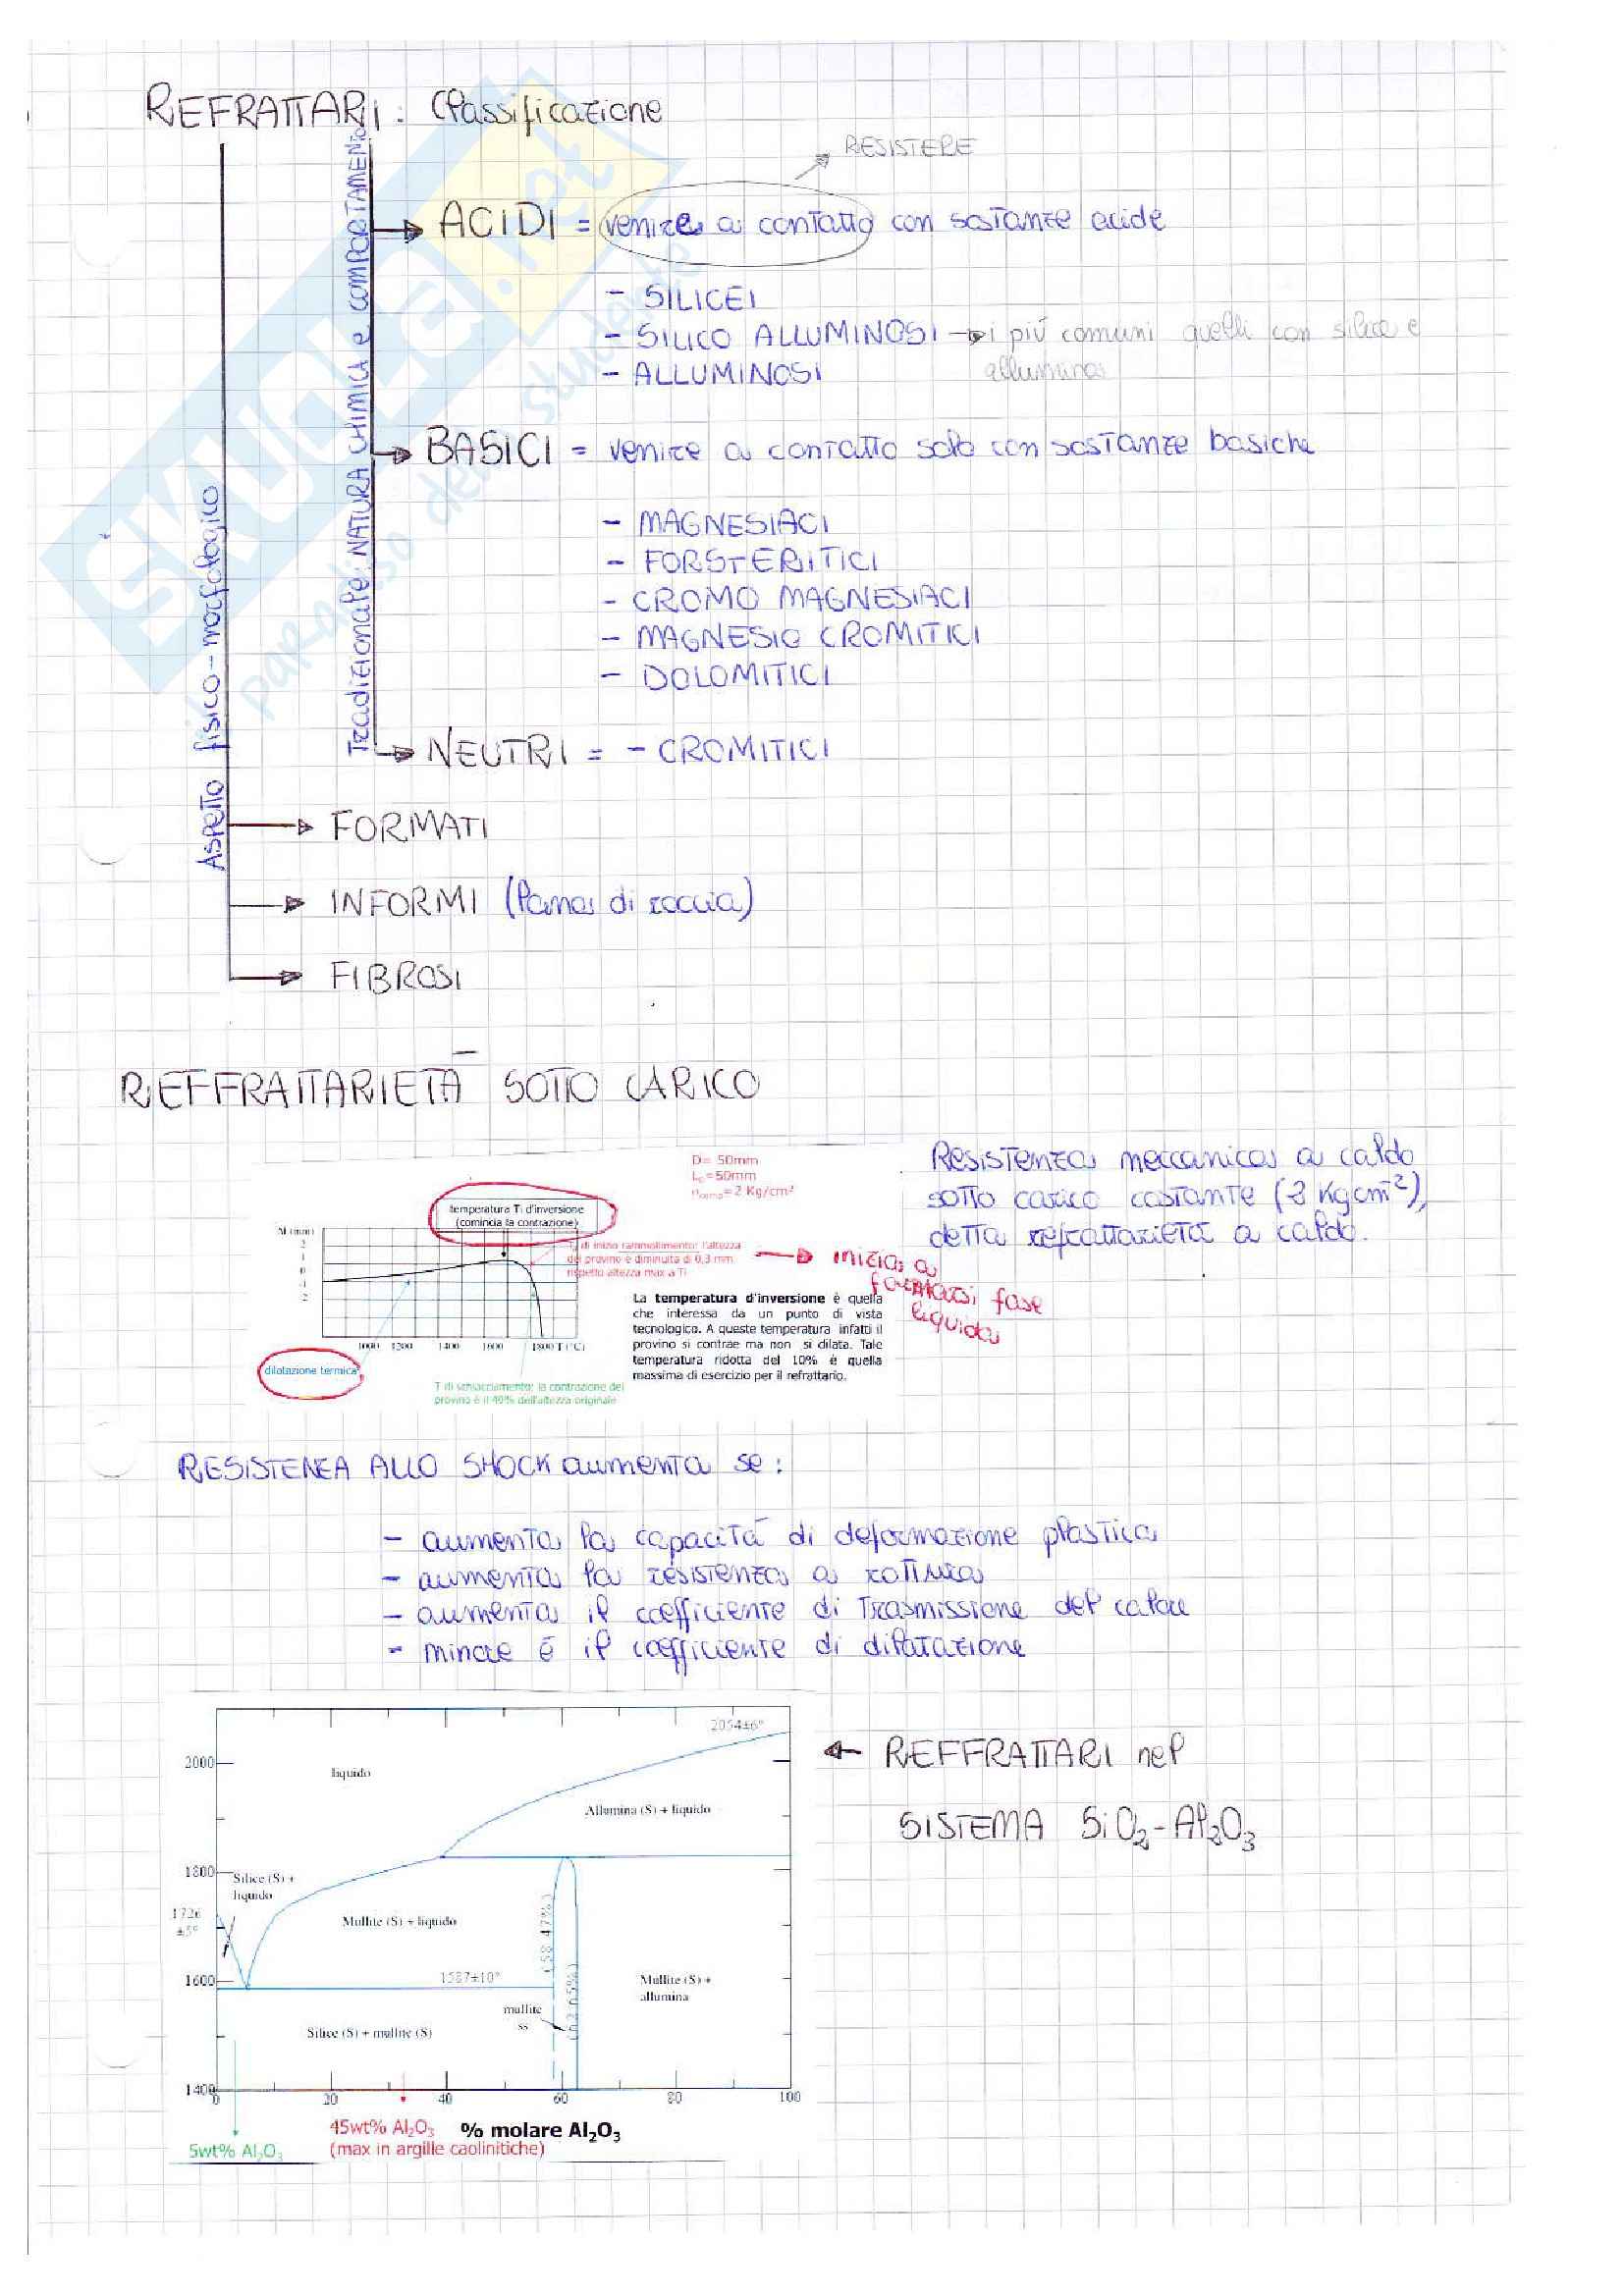 REFRATTARI: Classificazione
RESISTERE
Tradizionale: NATURA CHIMICA e COMPORTAMENTO
ACIDI = venire a contatto con sostanze acide
- SILICEI
- SILICO ALLUMINOSI → i più comuni quelli con silice e
allumina
- ALLUMINOSI
BASICI = venire a contatto solo con sostanze basiche
- MAGNESIACI
- FORSTERITICI
- CROMO MAGNESIACI
- MAGNESIO CROMITICI
- DOLOMITICI
NEUTRI = - CROMITICI
Aspetto fisico-morfologico
FORMATI
INFORMI (lana di roccia)
FIBROSI
SKUOLA.net
paradiso dello studente
REFFRATTARIETÀ SOTTO CARICO
D= 50mm
L0=50mm
=2 Kg/cm²
temperatura Ti d'inversione
(comincia la contrazione)
di inizio rammollimento: l'altezza
del provino è diminuita di 0,3 mm
rispetto altezza max a Ti
→ inizia a
formarsi fase
liquida
Resistenza meccanica a caldo
sotto carico costante (2 Kgcm²),
detta refrattarietà a caldo.
2
1
0
-1
-2
1000 1200 1400 1600 1800 T (°C)
dilatazione termica
La temperatura d'inversione è quella
che interessa da un punto di vista
tecnologico. A queste temperatura infatti il
provino si contrae ma non si dilata. Tale
temperatura ridotta del 10% è quella
massima di esercizio per il refrattario.
T di schiacciamento: la contrazione del
provino è il 40% dell'altezza originale
RESISTENZA ALLO SHOCK aumenta se:
- aumenta la capacità di deformazione plastica
- aumenta la resistenza a rottura
- aumenta il coefficiente di trasmissione del calore
- minore è il coefficiente di dilatazione
2054±6°
2000
liquido
Allumina (S) + liquido
← REFFRATTARI nel
SISTEMA SiO2-Al2O3
1800
Silice (S) +
liquido
1726
±5°
Mullite (S) + liquido
(58.47%)
1600
1587±10°
Mullite (S) +
allumina
mullite
ss
(62.65%)
Silice (S) + mullite (S)
1400
0 20 40 60 80 100
45wt% Al2O3 % molare Al2O3
5wt% Al2O3 (max in argille caolinitiche)